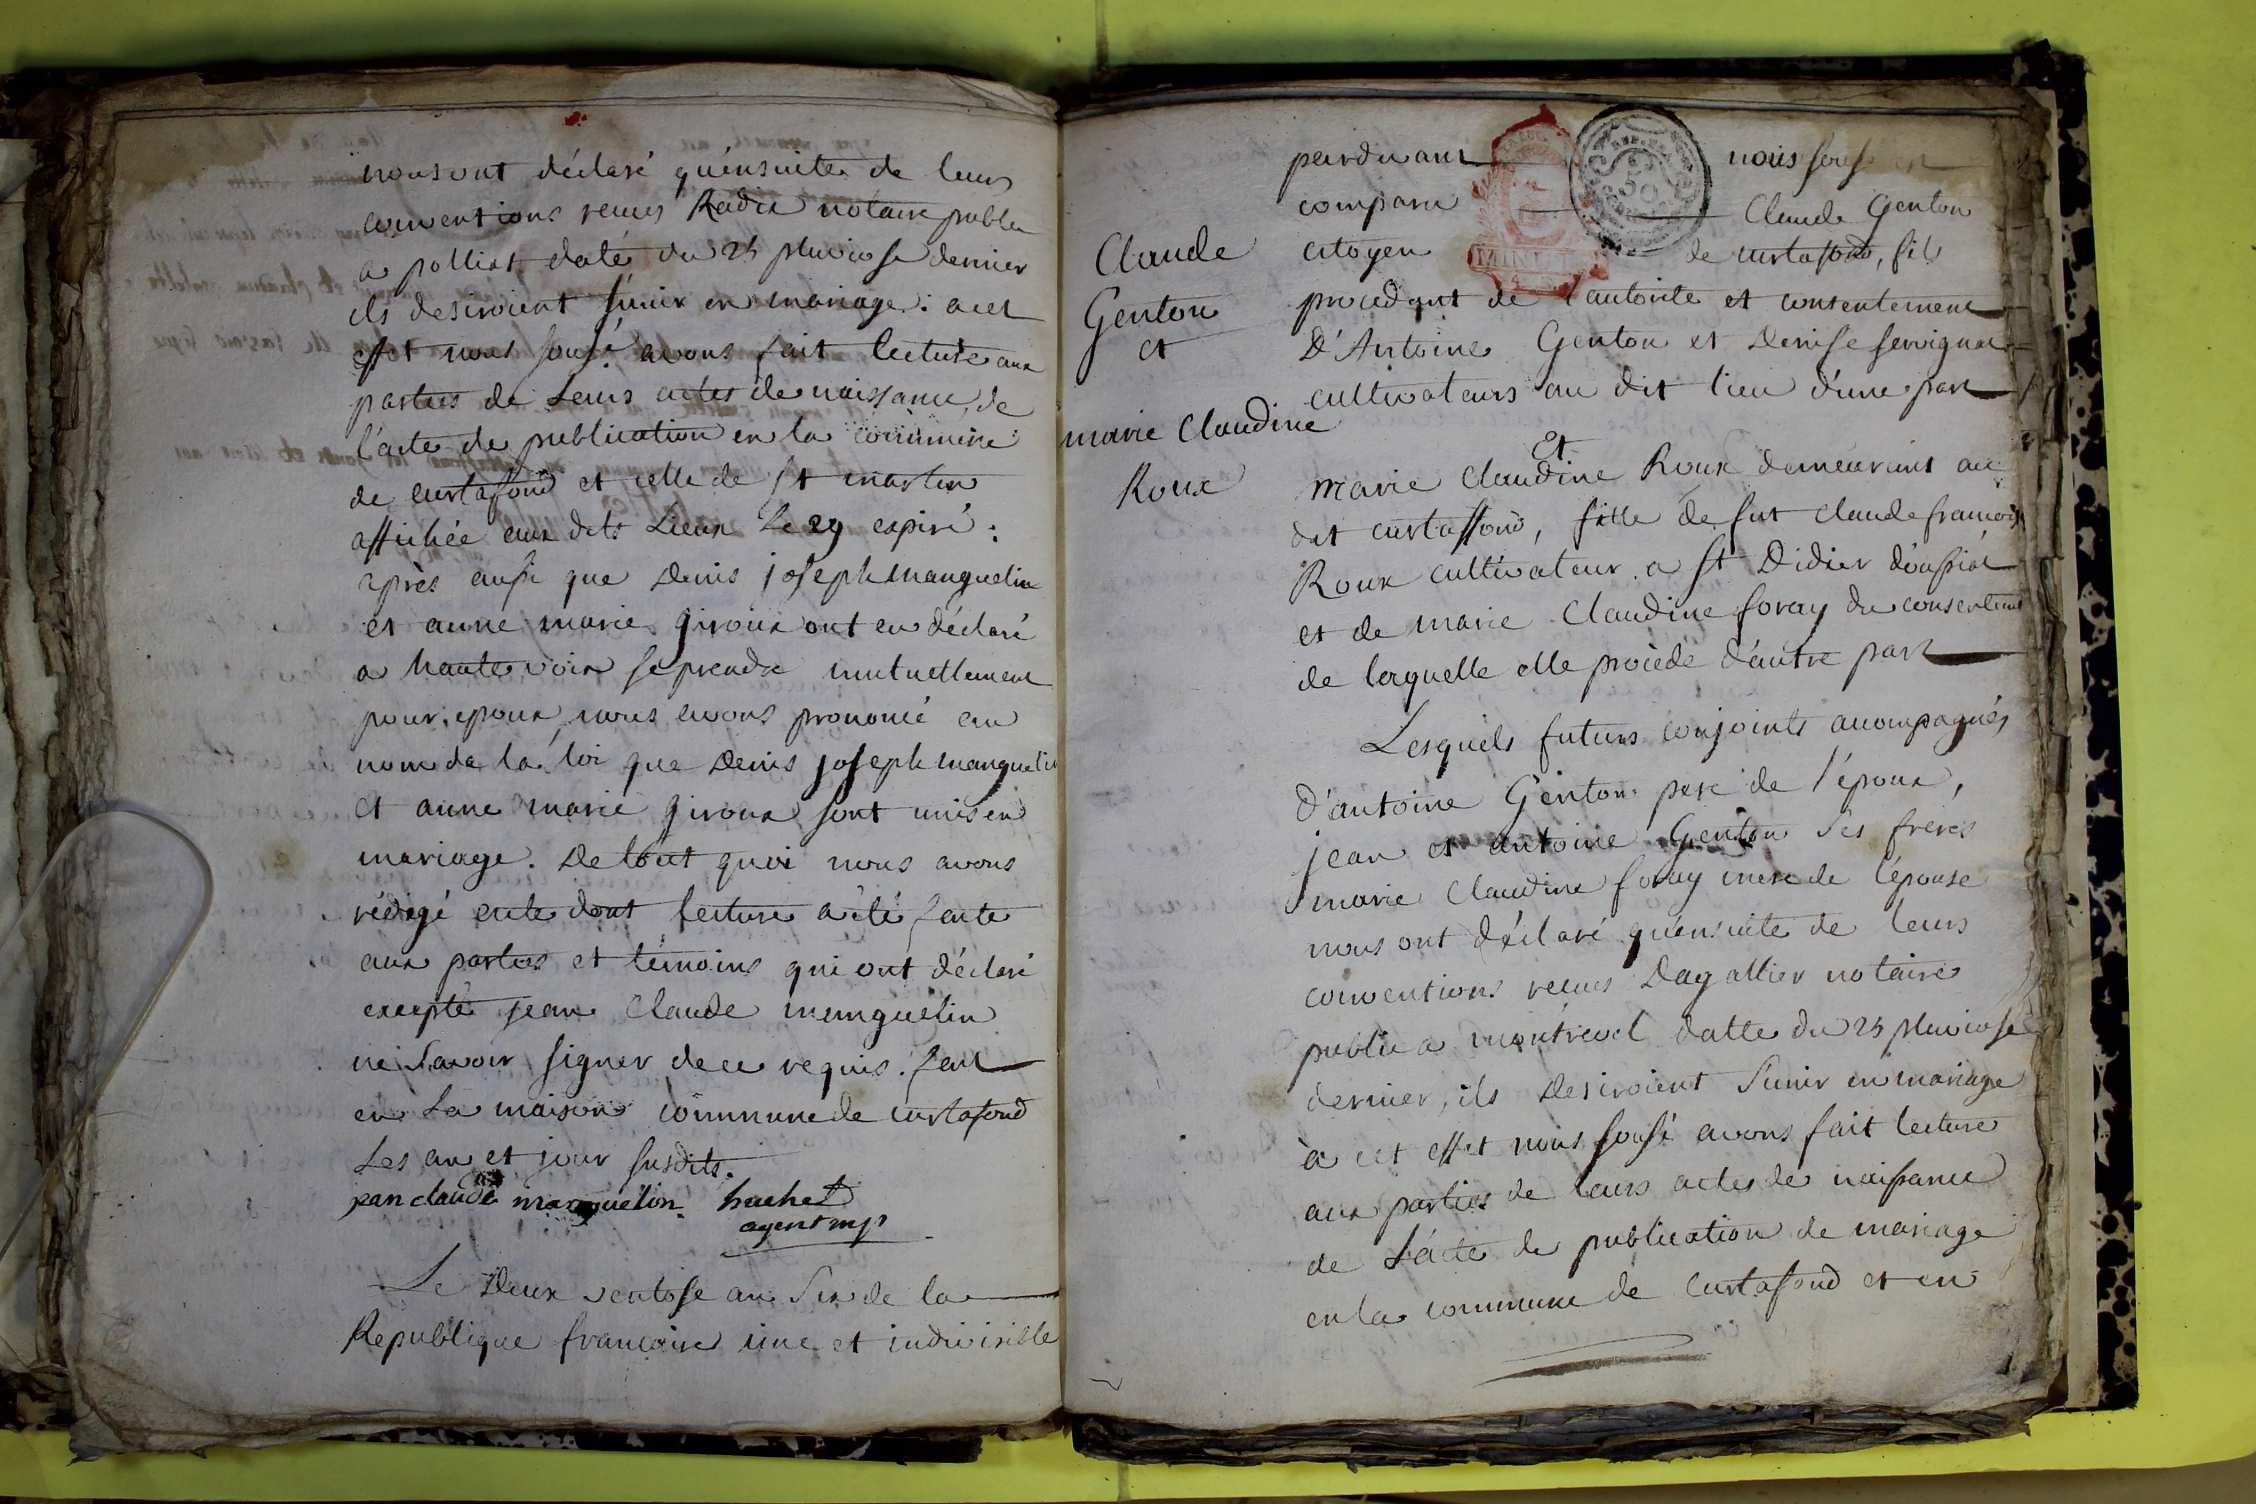 nous ont déclaré qu'énsuite de leurs
conventions recues Radix notaire public
a polliat daté du 25 pluviose dernier
ils desiroient s'unir en mariage : a cet
effet nous sousé avons fait lecture aux
parties de Leurs actes de naissance, de
l'acte de publication en la commune
de curtafond et celle de st martin
affichée aux dits Lieux Le 29 expiré :
après aussi que Denis joseph manguelin
et anne marie giroux ont eu déclaré
a haute voix se prendre mutuellement
pour epoux, nous avons prononcé au
nom de la loi que Denis joseph manguelin
et anne marie giroux sont unis en
mariage. De tout quoi nous avons
rédigé acte dont lecture a été faite
aux parties et témoins qui ont déclaré
excepté jean claude manguelin
ne savoir signer de ce requis. fait
en La maison commune de curtafond
Les an et jour susdits.
jean claude manguelin huchet
agent mpl
Le Deux ventose an Six de la
Republique francoise une et indivisible
Claude
Genton
et
marie Claudine
Roux
pardevant nous sousé
comparu Claude Genton
citoyen de curtafond, fils
procedant de l'autorite et consentement
D'Antoine Genton et Denise servignat
cultivateurs au dit lieu d'une part
Et
Marie Claudine Roux demeurant au
dit curtaffond, fille de fut claude francois
Roux cultivateur a st Didier d'oussiat
et de marie Claudine foray du consentement
de laquelle elle procède d'autre part
Lesquels futurs conjoints accompagnés
d'antoine Genton pere de l'époux,
jean et antoine Genton ses freres
marie Claudine foray mere de l'épouse
nous ont déclaré qu'énsuite de leurs
conventions recues Dagallier notaire
public a montrevel datte du 25 pluviose
dernier, ils desiroient s'unir en mariage
à cet effet nous sousé avons fait lecture
aux parties de leurs actes de naissance
de L'acte de publication de mariage
en la commune de Curtafond et en